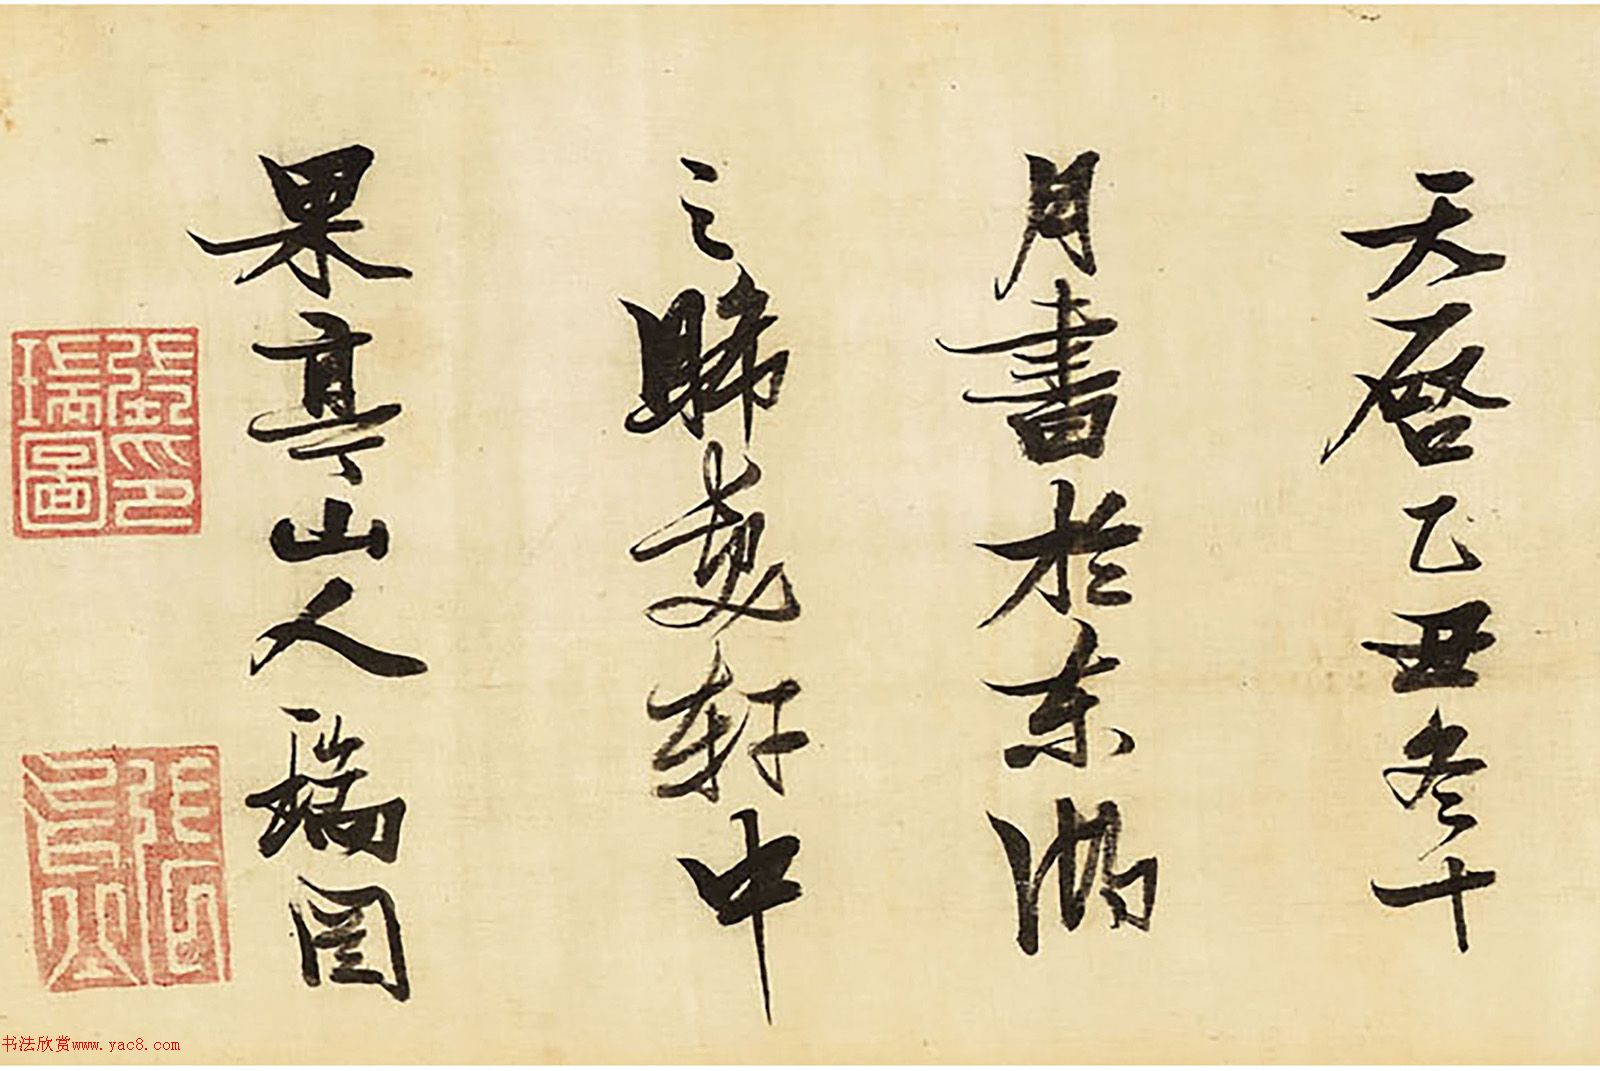 天啓乙丑冬十
月書於東湖
之晞髮軒中
果亭山人瑞圖
張瑞圖印
书法欣赏www.yac8.com